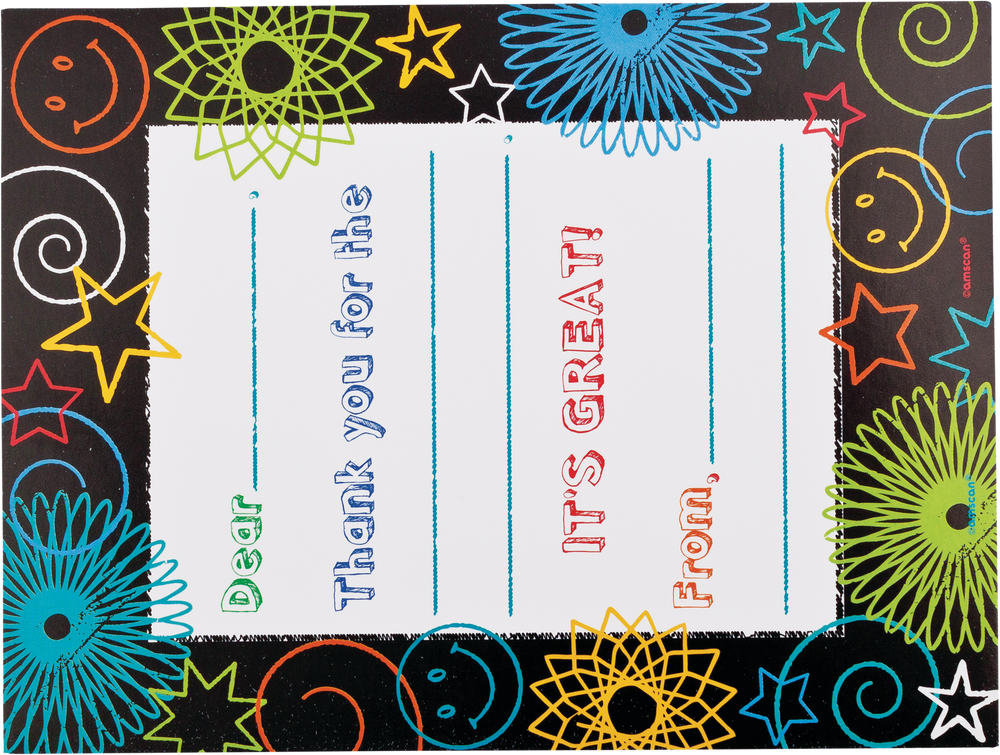 Dear ,
Thank you for the
.
IT'S GREAT!
From,
©amscan®
©amscan®